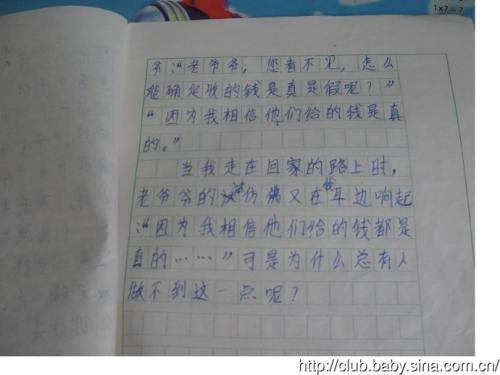 1×7=7
爷“老爷爷，您看不见，怎么
能确定收的钱是真是假呢？”
“因为我相信他们给的钱是真
的。”
当我走在回家的路上时，
老爷爷的话仿佛又在我耳边响起
“因为我相信他们给的钱都是
真的……”可是为什么总有人
做不到这一点呢？
http://club.baby.sina.com.cn/